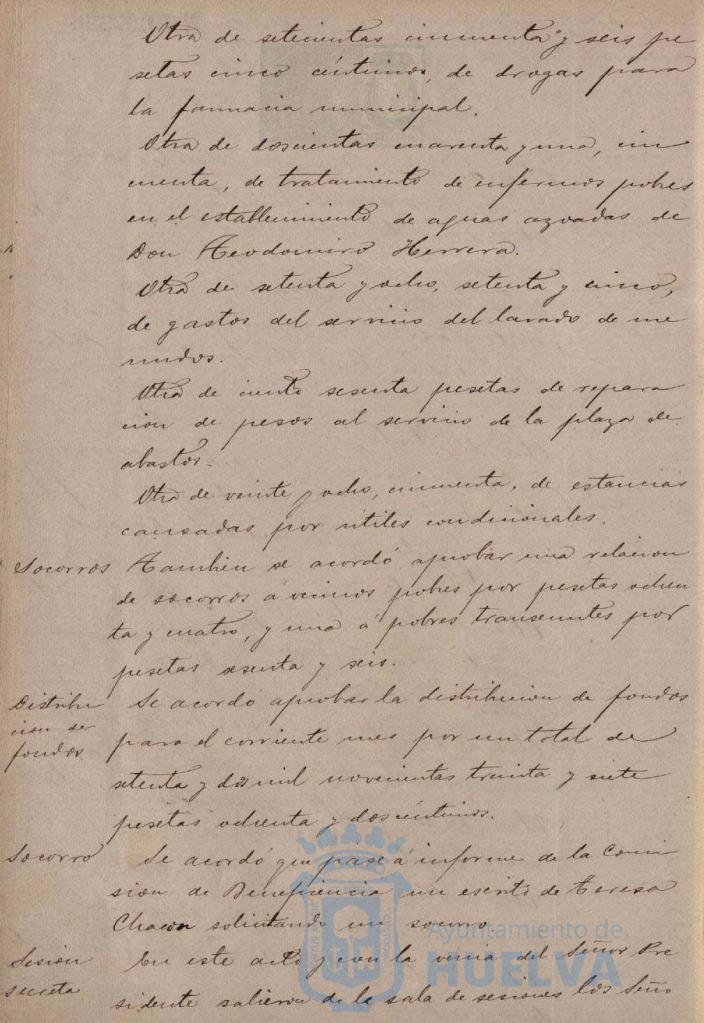 Otra de setecientas cincuenta y seis pe
setas cinco céntimos, de drogas para
la farmacia municipal.
Otra de doscientas cuarenta y una, cin
cuenta, de tratamiento de enfermos pobres
en el establecimiento de aguas azoadas de
Don Teodomiro Herrera.
Otra de setenta y ocho, setenta y cinco,
de gastos del servicio del lavado de me
nudos.
Otra de ciento sesenta pesetas de repara
cion de pesos al servicio de la plaza de
abastos.
Otra de veinte y ocho, cincuenta, de estancias
causadas por útiles condicionales.
Socorros Tambien se acordó aprobar una relacion
de socorros á vecinos pobres por pesetas ochen
ta y cuatro, y una á pobres transeuntes por
pesetas sesenta y seis.
Distribu
cion de
fondos
Se acordó aprobar la distribucion de fondos
para el corriente mes por un total de
setenta y dos mil novecientas treinta y siete
pesetas ochenta y dos céntimos.
Socorro Se acordó que pase á informe de la Comi
sion de Beneficencia un escrito de Teresa
Chacon solicitando un socorro.
Sesion
secreta
En este acto y con la venia del Señor Pre
sidente salieron de la sala de sesiones los Seño
Ayuntamiento de
HUELVA